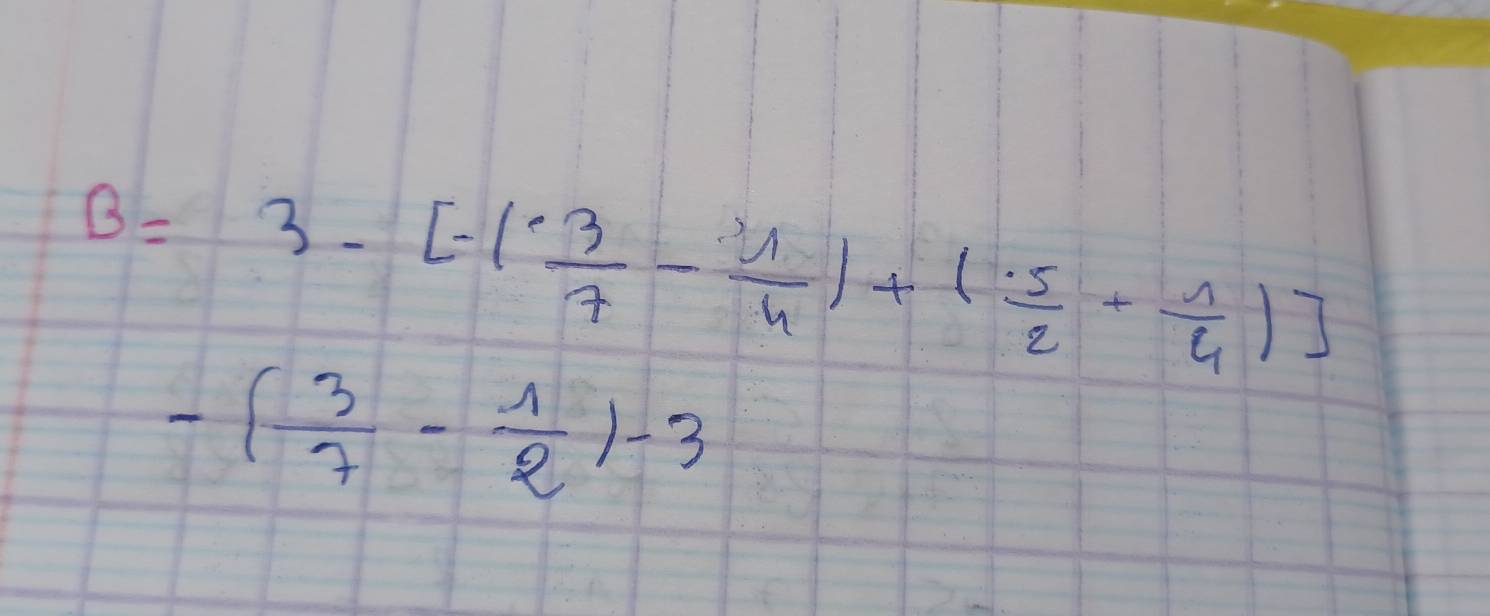 B = 3 - [-(3/7 - 1/4) + (5/2 + 1/4)]
- (3/7 - 1/2) - 3